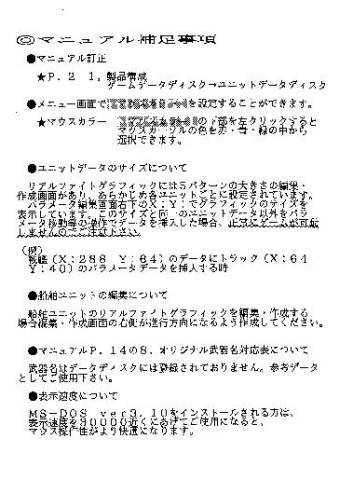 ◎マニュアル補足事項
●マニュアル訂正
★P.21,製品構成
ゲームデータディスク→ユニットデータディスク
●メニュー画面で を設定することができます。
★マウスカラー の下部を左クリックすると
マウスカーソルの色を赤・青・緑の中から
選択できます。
●ユニットデータのサイズについて
リアルファイトグラフィックには5パターンの大きさの編集・
作成画面があり、あらかじめ各ユニットごとに設定されています。
パラメータ編集画面右下のX:Y:でグラフィックのサイズを
表示しています。このサイズと同一のユニットデータ以外をパラ
メータ移動等の操作でデータを挿入した場合、正常にゲームが可能
しませんのでご注意下さい。
(例)
戦艦(X:288 Y:64)のデータにトラック(X:64
Y:40)のパラメータデータを挿入する時
●船舶ユニットの編集について
船舶ユニットのリアルファイトグラフィックを編集・作成する
場合編集・作成画面の右側が進行方向になるよう作成してください。
●マニュアルP.14の8、オリジナル武器名対応表について
武器名はデータディスクには登録されておりません。参考データ
としてご使用下さい。
●表示速度について
MS-DOS ver3.10をインストールされる方は、
表示速度を30000近くにあげてご使用になると、
マウス操作性がより快適になります。